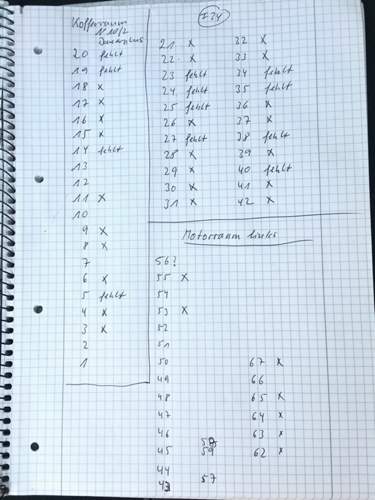 Kofferraum
20 fehlt
19 fehlt
18 x
17 x
16 x
15 x
14 fehlt
13
12
11 x
10
9 x
8 x
7
6 x
5 fehlt
4 x
3 x
2
1
21 x
22 x
23 fehlt
24 fehlt
25 fehlt
26 x
27 fehlt
28 x
29 x
30 x
31 x
32 x
33 x
34 fehlt
35 fehlt
36 x
37 x
38 fehlt
39 x
40 fehlt
41 x
42 x
Motorraum links
56?
55 x
54
53 x
52
51
50
49
48
47
46
45
44
43
58
59
57
67 x
66
65 x
64 x
63 x
62 x